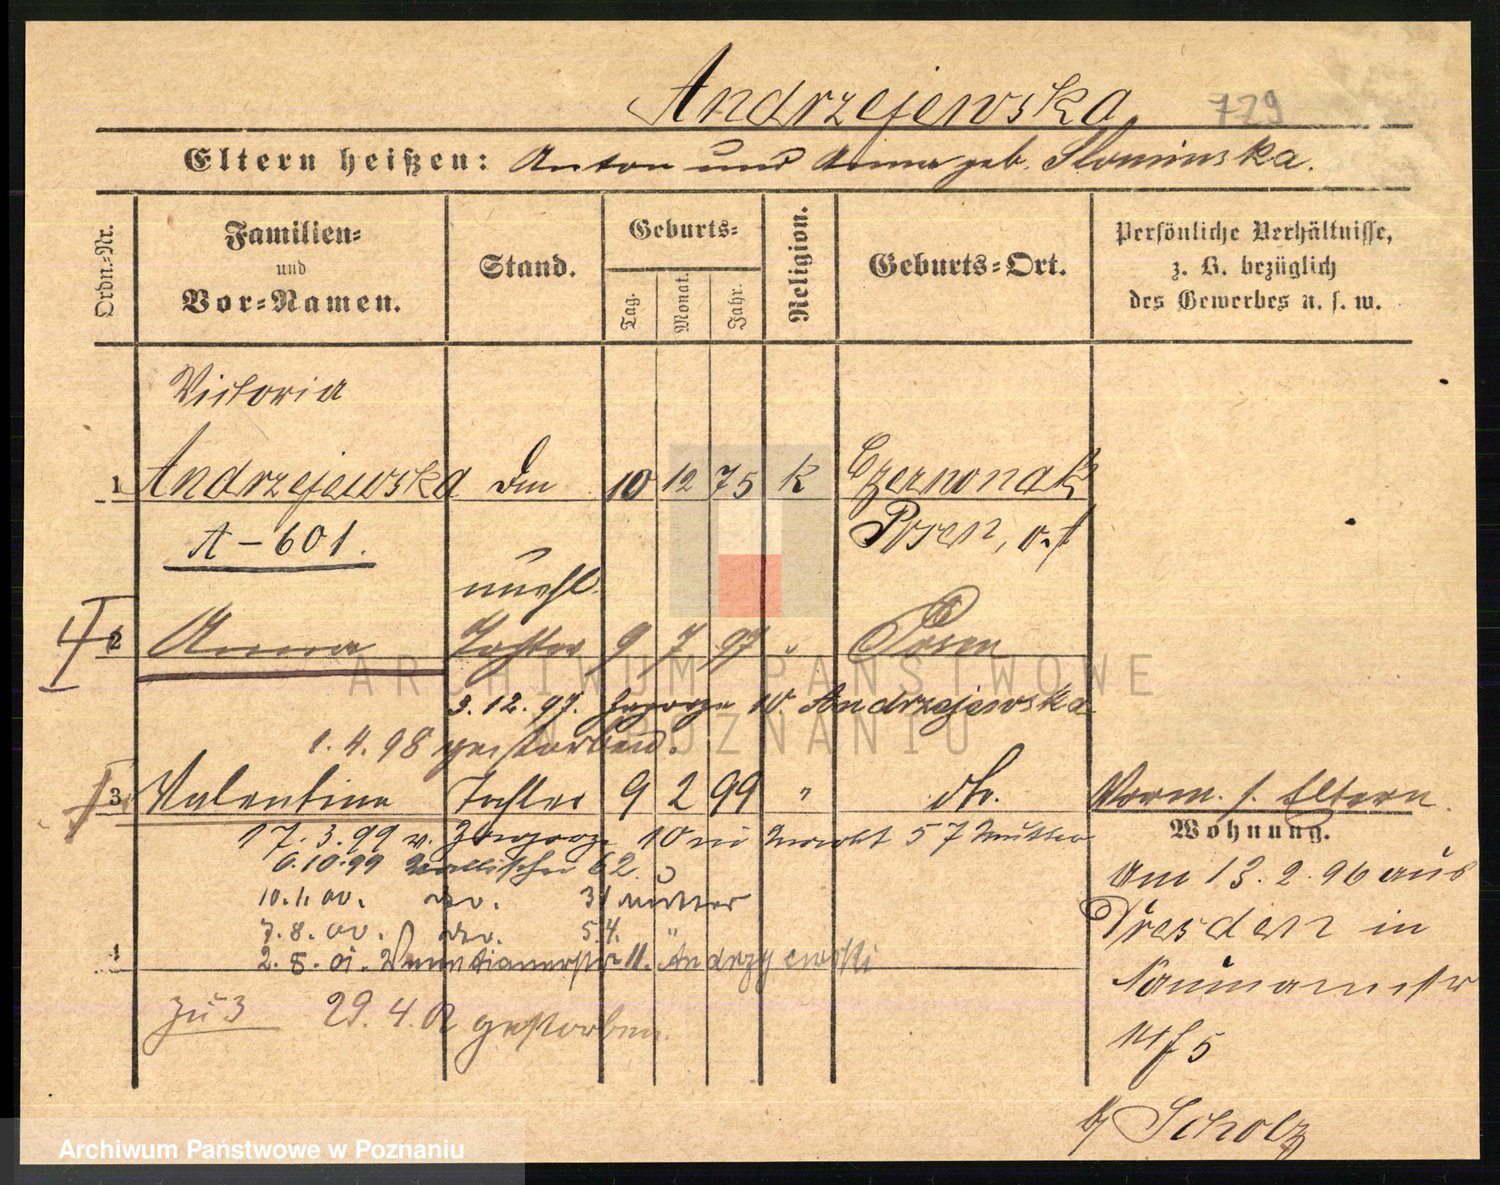 Andrzejewska 729
Eltern heißen: Anton und Anna geb. Slominska.
Ordn.-Nr.
Familien-
und
Vor-Namen.
Stand.
Geburts-
Tag.
Monat.
Jahr.
Religion.
Geburts-Ort.
Persönliche Verhältnisse,
z. B. bezüglich
des Gewerbes u. s. w.
Victoria
1 Andrzejewska 10 12 75 K Czerwonak
A-601. Posen, o.
unehl.
2 Anna Tochter 9 7 97 " Posen
3.12.97. 10. Andrzejewska
1.4.98 gestorben.
3 Valentine Tochter 9 2 99 " do. Vorm. s. Eltern.
Wohnung.
17.3.99 v. 10 57 Mutter
6.10.99 Wallischei 62.
10.1.00. do. 31 Mutter
7.8.00. do. 54. "
4 2.8.01. 11. Andrzyewski
zu 3 29.4.02 gestorben.
am 13.2.96 aus
Dresden in
Naumannstr
5
b/ Scholz
ARCHIWUM PAŃSTWOWE
W POZNANIU
Archiwum Państwowe w Poznaniu